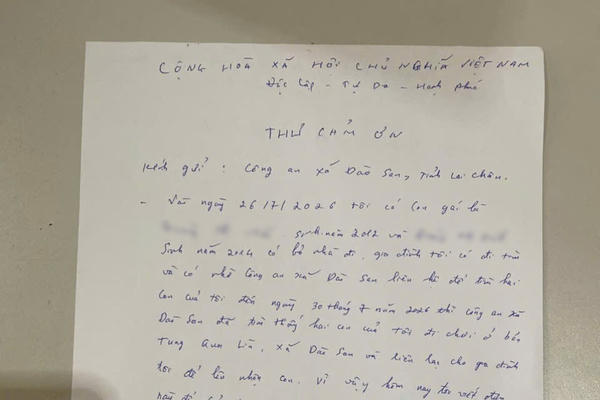 CỘNG HOÀ XÃ HỘI CHỦ NGHĨA VIỆT NAM
Độc lập - Tự Do - Hạnh phúc
THƯ CẢM ƠN
Kính gửi : Công an xã Dào San, tỉnh Lai Châu.
- Vào ngày 26/7/2026 tôi có con gái là
sinh năm 2012 và
sinh năm 2014 có bỏ nhà đi, gia đình tôi có đi tìm
và có nhờ Công an xã Dào San liên hệ để tìm hai
con của tôi đến ngày 30 tháng 7 năm 2026 thì công an xã
Dào San đã tìm thấy hai con của tôi đi chơi ở bản
Tung Qua Lìn, xã Dào San và liên lạc cho gia đình
tôi để lên nhận con. Vì vậy hôm nay tôi viết đơn
này để